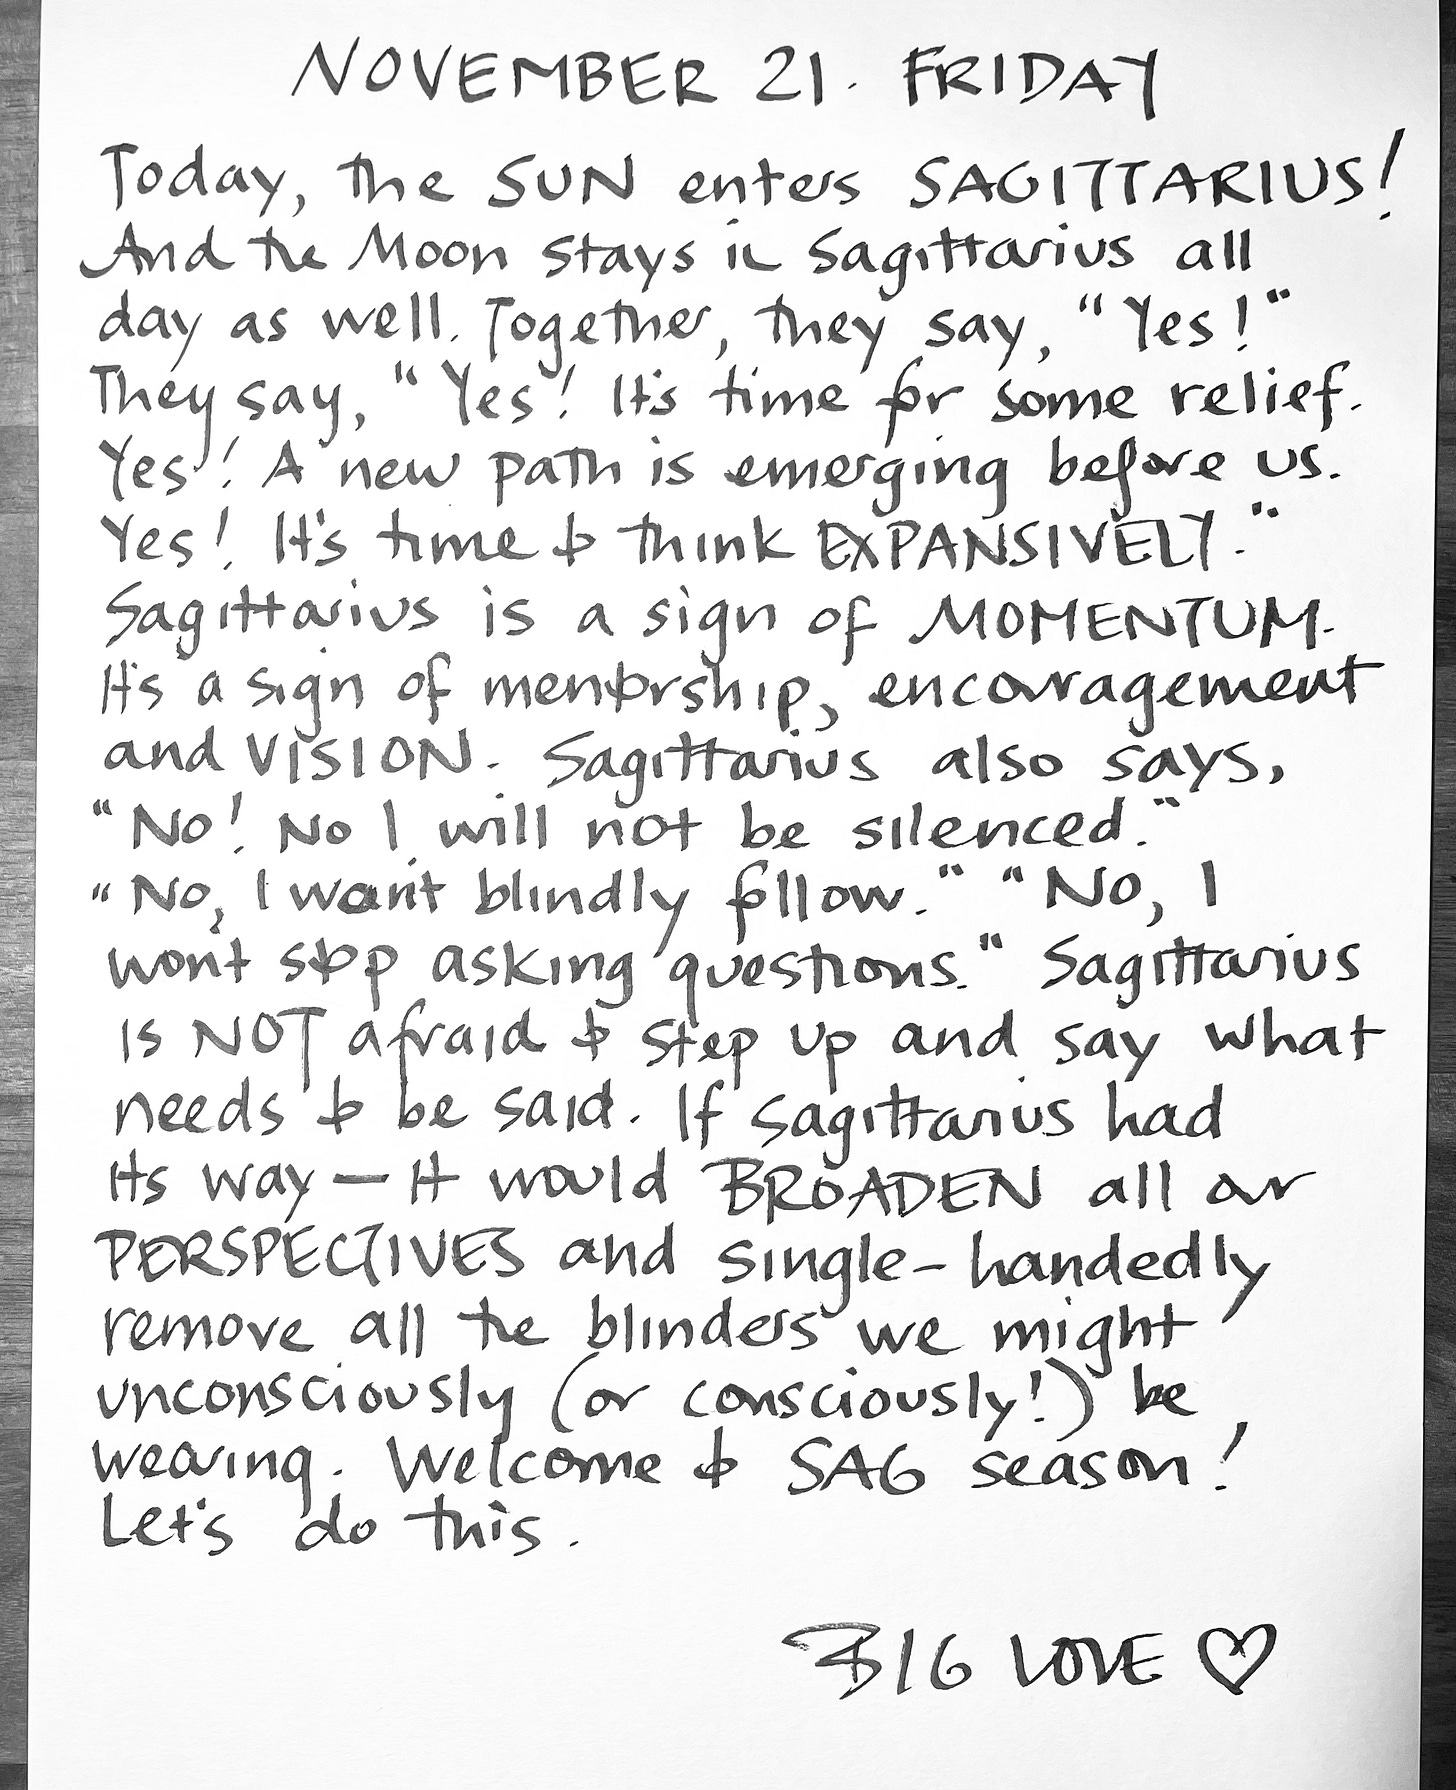 NOVEMBER 21. FRIDAY
Today, the SUN enters SAGITTARIUS!
And the Moon stays in Sagittarius all
day as well. Together, they say, "Yes!"
They say, "Yes! It's time for some relief.
Yes! A new path is emerging before us.
Yes! It's time to think EXPANSIVELY."
Sagittarius is a sign of MOMENTUM.
It's a sign of mentorship, encouragement
and VISION. Sagittarius also says,
"No! No I will not be silenced."
"No, I won't blindly follow." "No, I
won't stop asking questions." Sagittarius
is NOT afraid to step up and say what
needs to be said. If Sagittarius had
its way – it would BROADEN all our
PERSPECTIVES and single-handedly
remove all the blinders we might
unconsciously (or consciously!) be
wearing. Welcome to SAG season!
Let's do this.
BIG LOVE ♡